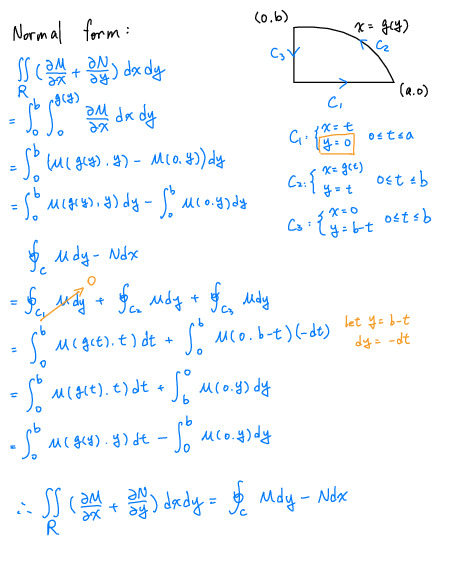 Normal form:
(0,b)
x = g(y)
C₃
C₂
C₁
(a,0)
∬_R (∂M/∂x + ∂N/∂y) dxdy
= ∫₀ᵇ ∫₀^{g(y)} ∂M/∂x dx dy
= ∫₀ᵇ (M(g(y), y) − M(0,y)) dy
= ∫₀ᵇ M(g(y), y) dy − ∫₀ᵇ M(0,y) dy
C₁ = { x = t, y = 0 0 ≤ t ≤ a
C₂: { x = g(t), y = t 0 ≤ t ≤ b
C₃ = { x = 0, y = b-t 0 ≤ t ≤ b
∮_C M dy − N dx
0
= ∮_{C₁} M dy + ∮_{C₂} M dy + ∮_{C₃} M dy
= ∫₀ᵇ M(g(t), t) dt + ∫₀ᵇ M(0, b-t)(-dt)
let y = b-t
dy = -dt
= ∫₀ᵇ M(g(t), t) dt + ∫_b^0 M(0,y) dy
= ∫₀ᵇ M(g(y), y) dt − ∫₀ᵇ M(0,y) dy
∴ ∬_R (∂M/∂x + ∂N/∂y) dxdy = ∮_C M dy − N dx